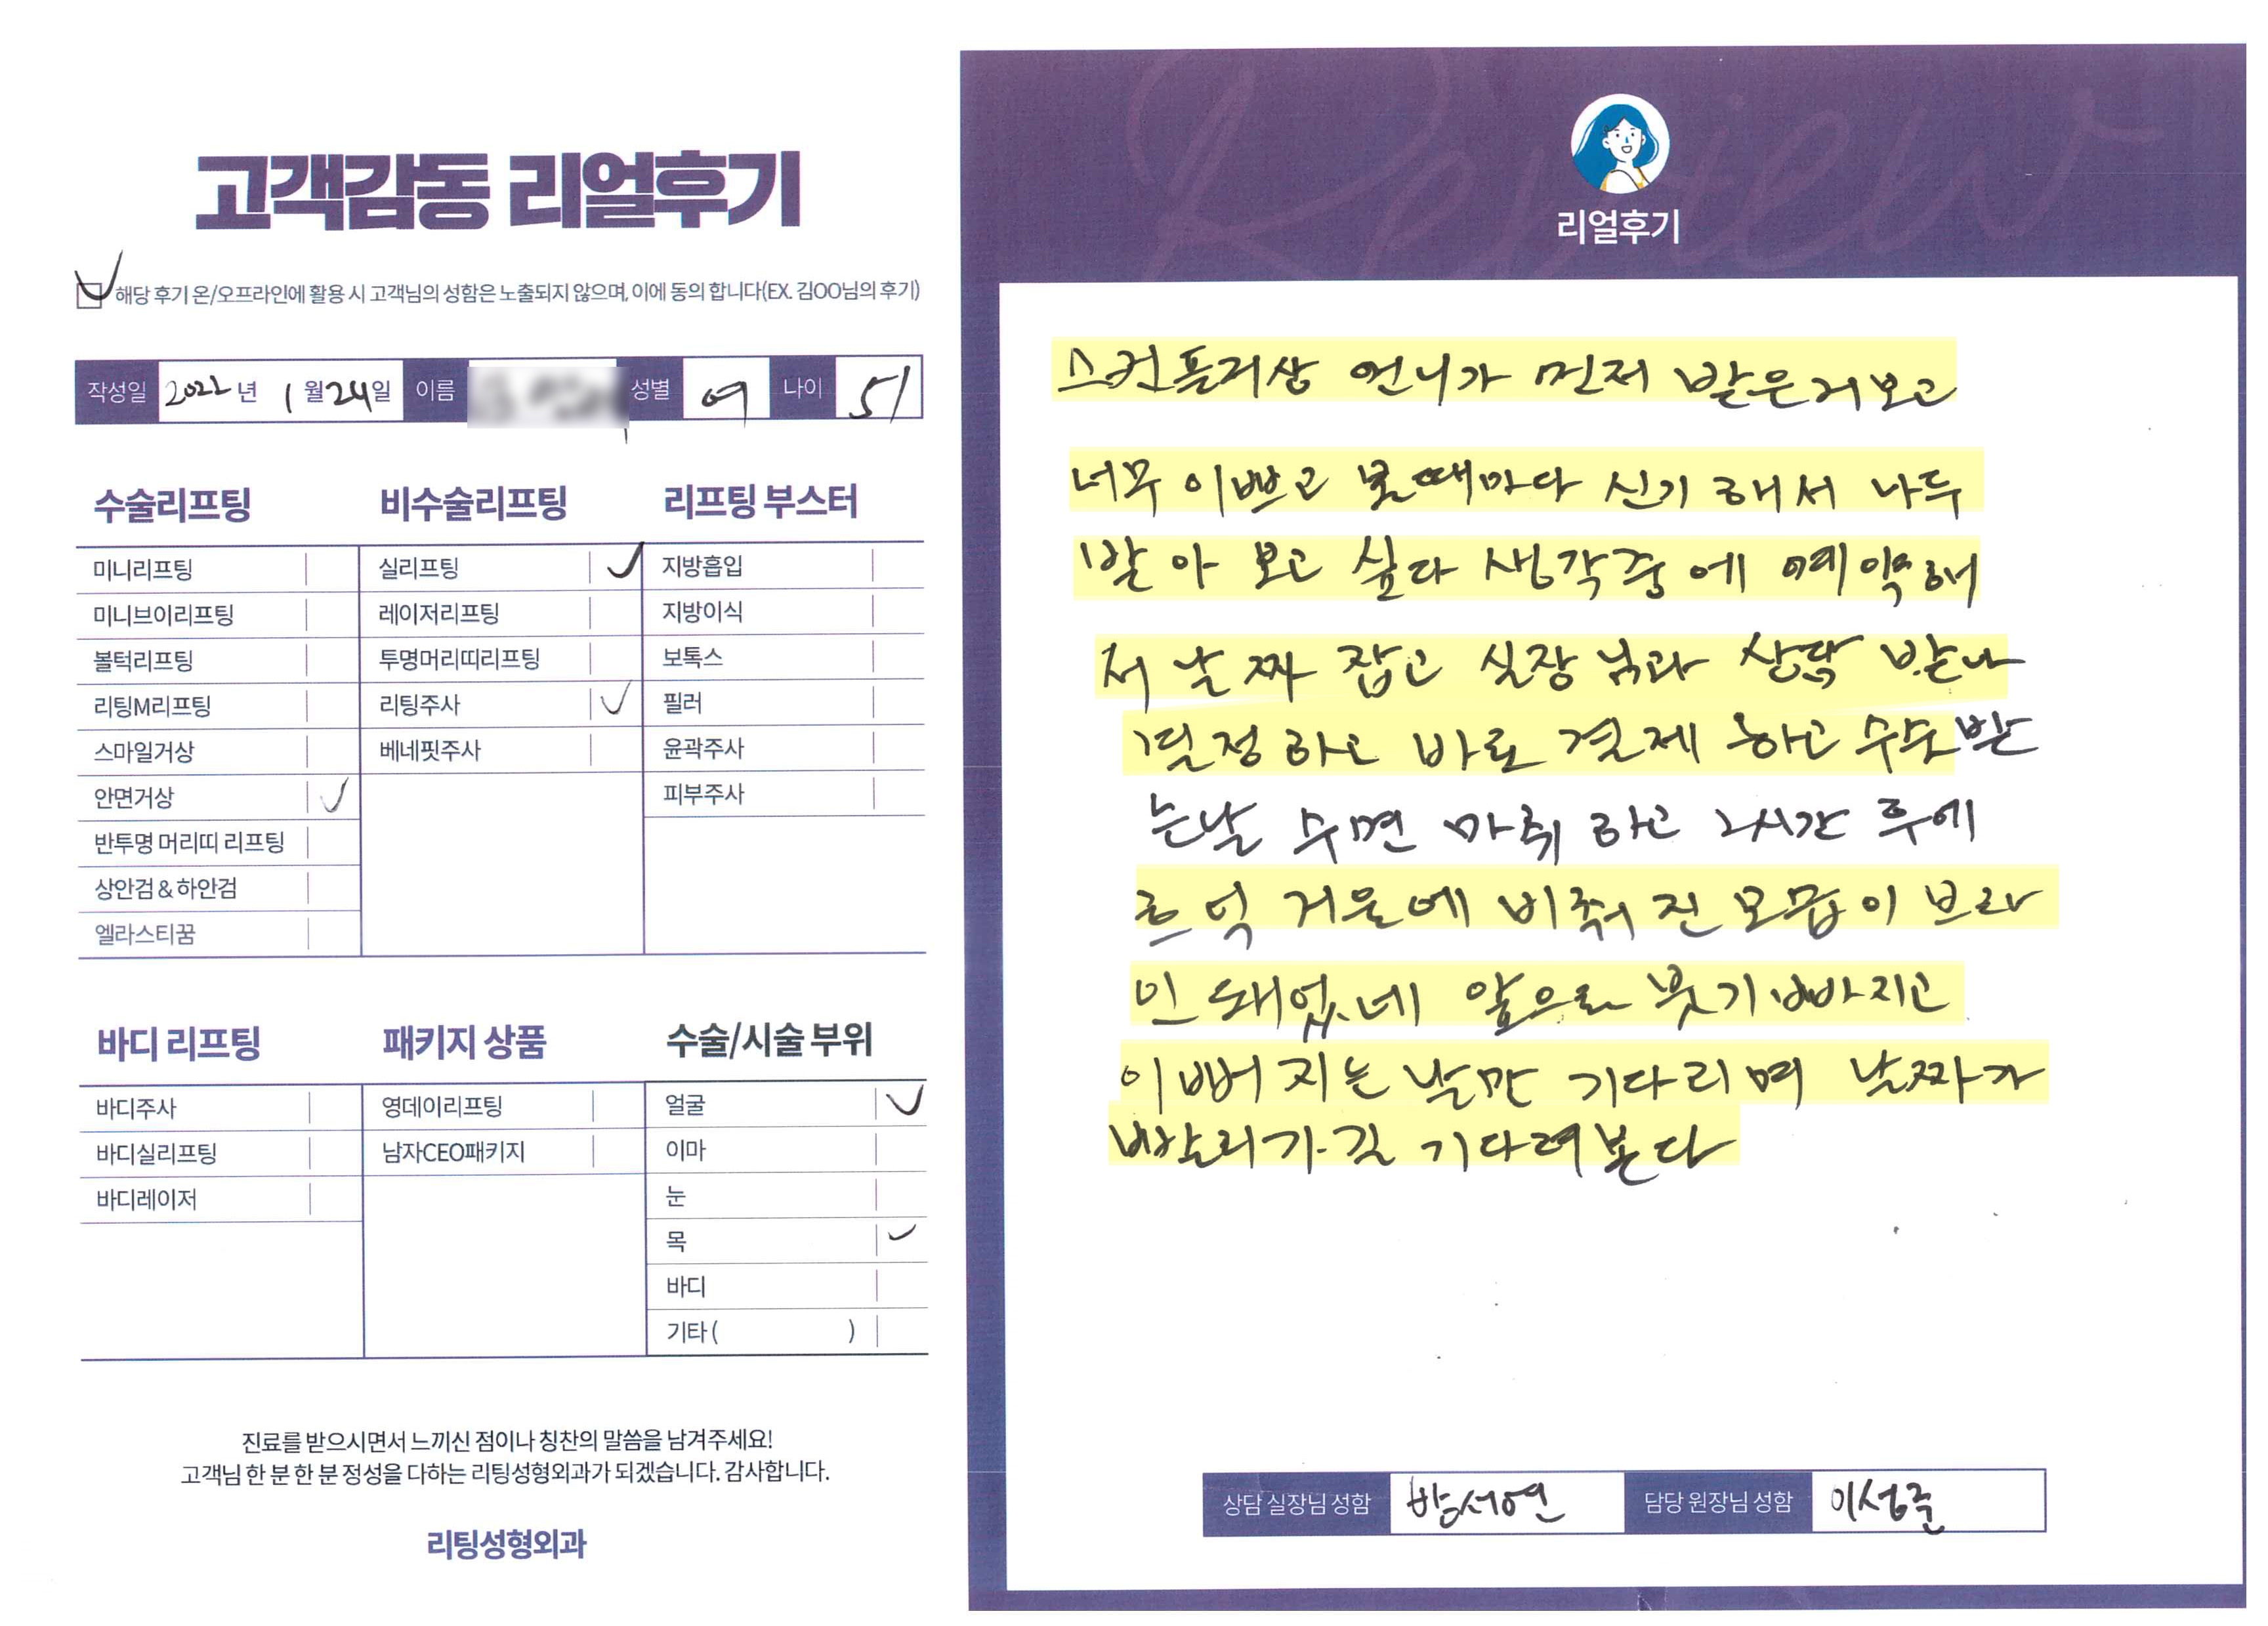 고객감동 리얼후기
해당 후기 온/오프라인에 활용 시 고객님의 성함은 노출되지 않으며, 이에 동의 합니다(EX. 김OO님의 후기)
작성일 2022년 1월 24일 이름 성별 여 나이 51
수술리프팅
미니리프팅
미니브이리프팅
볼턱리프팅
리팅M리프팅
스마일거상
안면거상
반투명 머리띠 리프팅
상안검&하안검
엘라스티꿈
비수술리프팅
실리프팅
레이저리프팅
투명머리띠리프팅
리팅주사
베네핏주사
리프팅 부스터
지방흡입
지방이식
보톡스
필러
윤곽주사
피부주사
바디 리프팅
바디주사
바디실리프팅
바디레이저
패키지 상품
영데이리프팅
남자CEO패키지
수술/시술 부위
얼굴
이마
눈
목
바디
기타 ( )
진료를 받으시면서 느끼신 점이나 칭찬의 말씀을 남겨주세요!
고객님 한 분 한 분 정성을 다하는 리팅성형외과가 되겠습니다. 감사합니다.
리팅성형외과
Review
리얼후기
언니가 먼저 받은거보고
너무 이쁘고 볼때마다 신기해서 나두
받아 보고 싶다 생각중에 예약해
서 날짜 잡고 실장님과 상담 받나
결정하고 바로 결제 하고 수술받
는날 수면 마취 하고 2시간 후에
흐억 거울에 비춰진 모습이 브라
인 돼었네 앞으로 붓기 빠지고
이뻐지는 날만 기다리며 날짜가
빨리가길 기다려본다
상담 실장님 성함 박서연 담당 원장님 성함 이성준